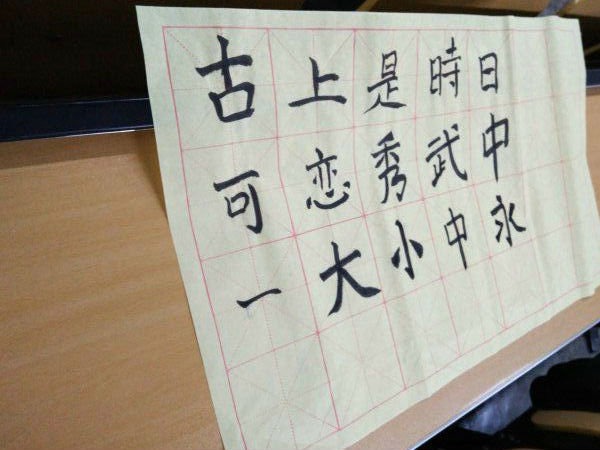 古上是時日
可恋秀武中
一大小中永